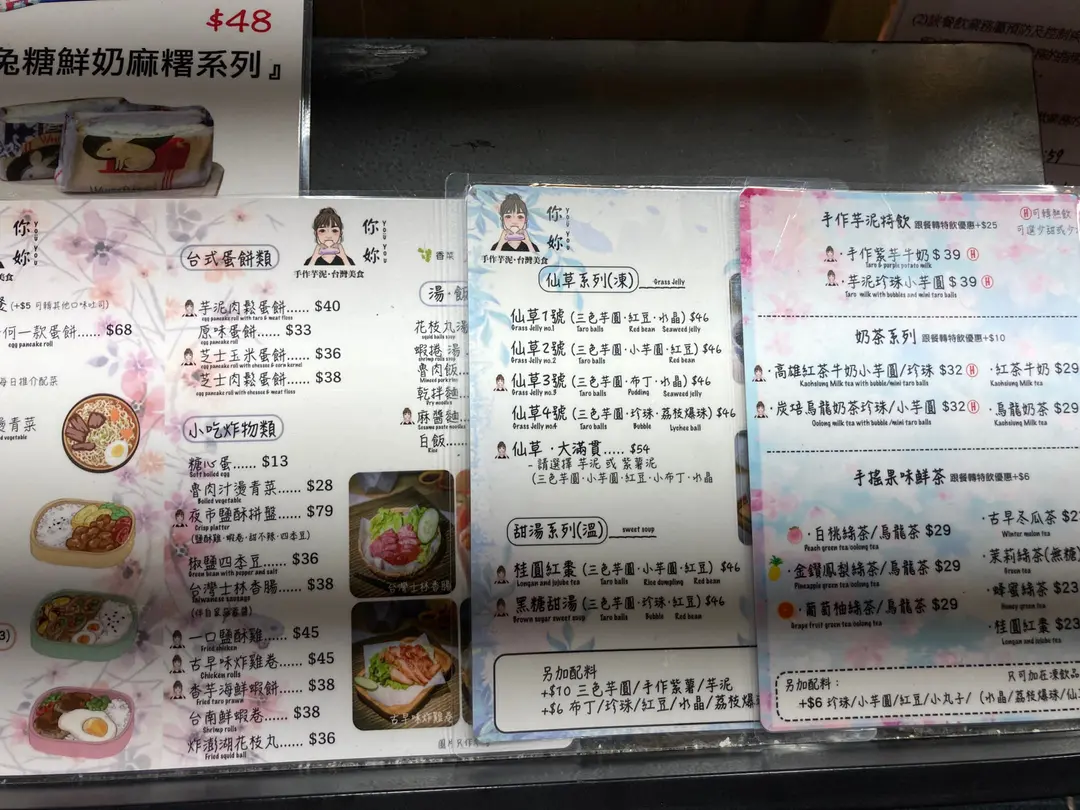 $48
兔糖鮮奶麻糬系列』
你
妳
YOU YOU
美食
(+$5 可轉其他口味吐司)
何一款蛋餅...... $68
egg pancake roll
每日推介配菜
燙青菜
3)
你
妳
YOU YOU
手作芋泥·台灣美食
台式蛋餅類
芋泥肉鬆蛋餅... $40
egg pancake roll with taro & meat floss
原味蛋餅...... $33
egg pancake roll
芝士玉米蛋餅... $36
egg pancake roll with cheese & corn kernel
芝士肉鬆蛋餅... $38
egg pancake roll with cheese & meat floss
小吃炸物類
糖心蛋...... $13
Soft boiled egg
魯肉汁燙青菜...... $28
Boiled vegetable
夜市鹽酥拼盤... $79
Crisp platter
(鹽酥雞·蝦卷·甜不辣·四季豆)
椒鹽四季豆...... $36
Green bean with pepper and salt
台灣士林香腸... $38
Taiwanese sausage
一口鹽酥雞... $45
Fried chicken
古早味炸雞卷...... $45
Chicken rolls
香芋海鮮蝦餅... $38
Fried taro prawn
台南鮮蝦卷... $38
Shrimp rolls
炸澎湖花枝丸...... $36
Fried squid ball
香菜
湯·飯
花枝丸湯
蝦捲湯
shrimp rolls soup
魯肉飯...
Minced pork rice
乾拌麵...
Dry noodles
麻醬麵...
Sesame paste noodles
白飯...
Rice
台灣士林香腸
古早味炸雞卷
你
妳
YOU YOU
手作芋泥·台灣美食
仙草系列(凍) Grass Jelly
仙草1號 (三色芋圓·紅豆·水晶) $46
Grass Jelly no.1 Taro balls Red bean Seaweed jelly
仙草2號 (三色芋圓·小芋圓·紅豆) $46
Grass Jelly no.2 Taro balls Red bean
仙草3號 (三色芋圓·布丁·水晶) $46
Grass Jelly no.3 Taro balls Pudding Seaweed jelly
仙草4號 (三色芋圓·珍珠·荔枝爆珠) $46
Grass Jelly no.4 Taro balls Bubble Lychee ball
仙草·大滿貫..... $54
- 請選擇 芋泥 或 紫薯泥
(三色芋圓·小芋圓·紅豆·小布丁·水晶
甜湯系列(溫) sweet soup
桂圓紅棗 (三色芋圓·小芋圓·紅豆) $46
Longan and jujube tea Taro balls Rice dumpling Red bean
黑糖甜湯 (三色芋圓·珍珠·紅豆) $46
Brown sugar sweet soup Taro balls Bubble Red bean
另加配料
+$10 三色芋圓/手作紫薯/芋泥
+$6 布丁/珍珠/紅豆/水晶/荔枝爆
手作芋泥特飲 跟餐轉特飲優惠+$25
Ⓗ可轉熱飲
可選少甜或少
手作紫芋牛奶 $39 Ⓗ
Taro & purple potato milk
芋泥珍珠小芋圓 $39 Ⓗ
Taro milk with bobble and mini taro balls
奶茶系列 跟餐轉特飲優惠+$10
·高雄紅茶牛奶小芋圓/珍珠 $32 Ⓗ
Kaohsiung Milk tea with bobble/mini taro balls
·紅茶牛奶 $29
Kaohsiung Milk tea
·炭焙烏龍奶茶珍珠/小芋圓 $32 Ⓗ
Oolong milk tea with bobble/mini taro balls
·烏龍奶茶 $29
Kaohsiung Milk tea
手搖果味鮮茶 跟餐轉特飲優惠+$6
·白桃綠茶/烏龍茶 $29
Peach green tea/oolong tea
·金鑽鳳梨綠茶/烏龍茶 $29
Pineapple green tea/oolong tea
·葡萄柚綠茶/烏龍茶 $29
Grape fruit green tea/oolong tea
·古早冬瓜茶 $2
Winter melon tea
·茉莉綠茶(無糖)
Green tea
·蜂蜜綠茶 $23
Honey green tea
·桂圓紅棗 $23
Longan and jujube tea
另加配料:
只可加在凍飲品
+$6 珍珠/小芋圓/紅豆/小丸子/ (水晶/荔枝爆珠/仙